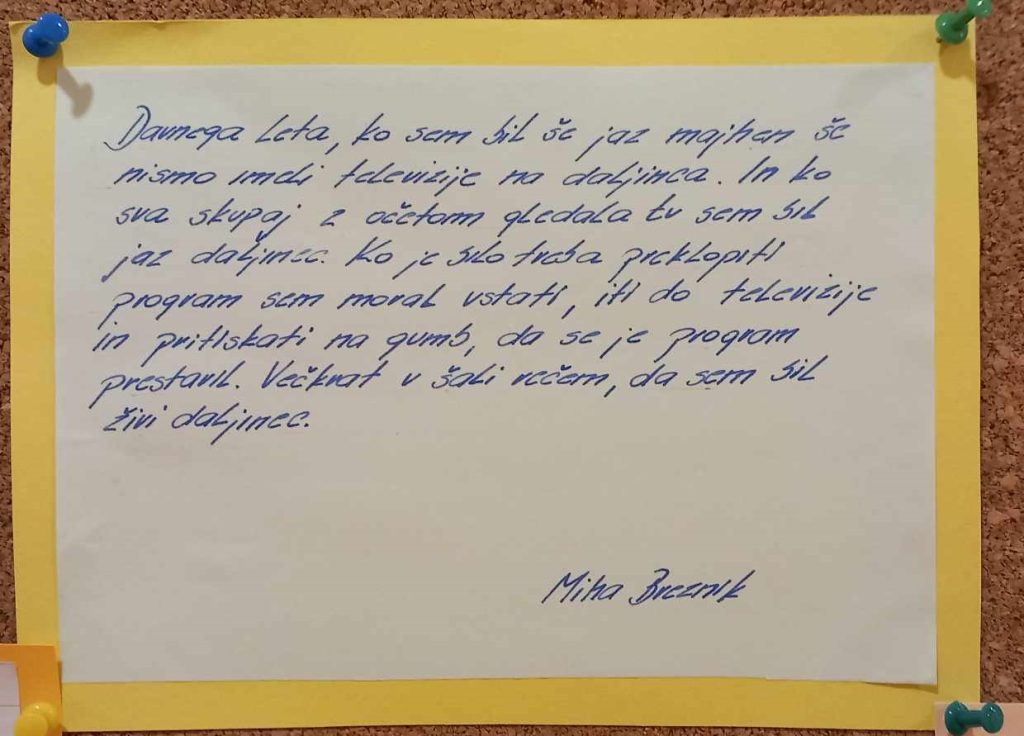 Davnega leta, ko sem bil še jaz majhen še
nismo imeli televizije na daljinca. In ko
sva skupaj z očetom gledala tv sem bil
jaz daljinec. Ko je bilo treba preklopiti
program sem moral vstati, iti do televizije
in pritiskati na gumb, da se je program
prestavil. Večkrat v šali rečem, da sem bil
živi daljinec.
Miha Breznik